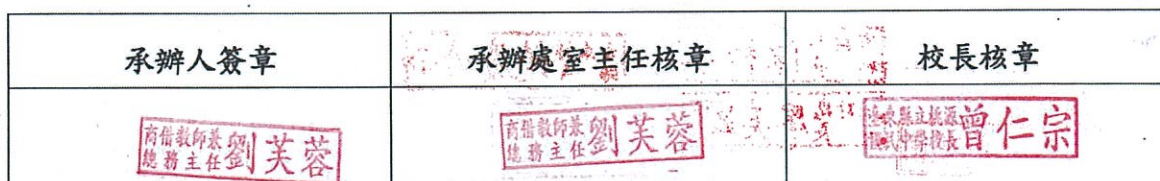 承辦人簽章 承辦處室主任核章 校長核章
商借教師兼
總務主任 劉芙蓉
商借教師兼
總務主任 劉芙蓉
臺東縣立桃源
國民中學校長 曾仁宗